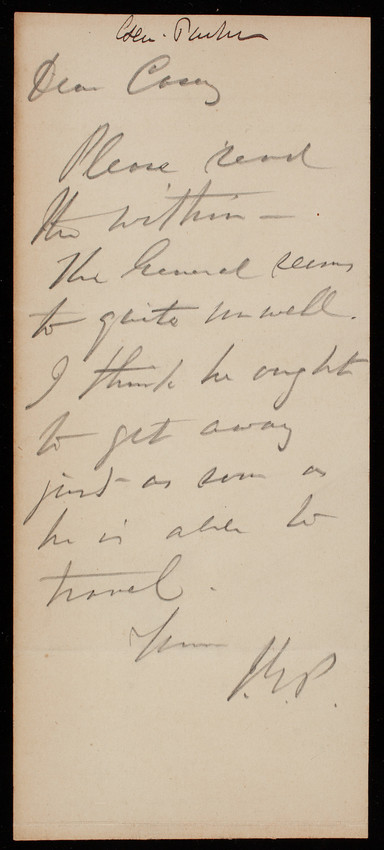 Gen. Parke
Dear Casey
Please read
the within —
The General seems
to quite unwell.
I think he ought
to get away
just as soon as
he is able to
travel.
Yours
J.G.P.